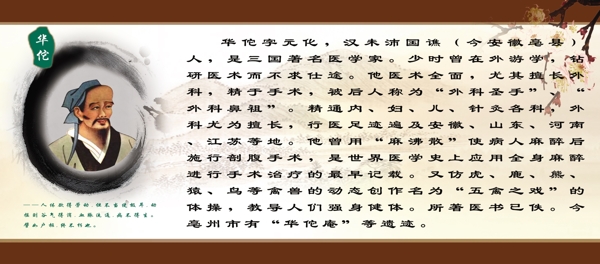 华佗
华佗字元化，汉末沛国谯（今安徽亳县）
人，是三国著名医学家。少时曾在外游学，钻
研医术而不求仕途。他医术全面，尤其擅长外
科，精于手术，被后人称为“外科圣手”、“
外科鼻祖”。精通内、妇、儿、针灸各科，外
科尤为擅长，行医足迹遍及安徽、山东、河南
、江苏等地。他曾用“麻沸散”使病人麻醉后
施行剖腹手术，是世界医学史上应用全身麻醉
进行手术治疗的最早记载。又仿虎、鹿、熊、
猿、鸟等禽兽的动态创作名为“五禽之戏”的
体操，教导人们强身健体。所著医书已佚。今
亳州市有“华佗庵”等遗迹。
——人体欲得劳动，但不当使极耳，动
摇则谷气得消，血脉流通，病不得生，
譬如户枢，终不朽也。